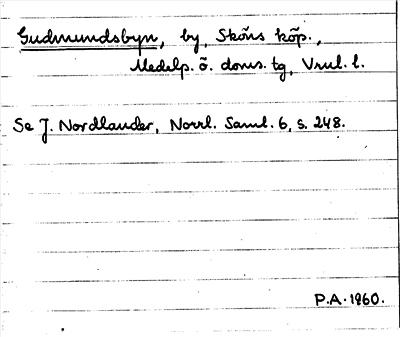 Gudmundsbyn, by, Sköns köp.,
Medelp. ö. doms. tg, Vnul. l.
Se J. Nordlander, Norrl. Saml. 6, s. 248.
P.A. 1960.